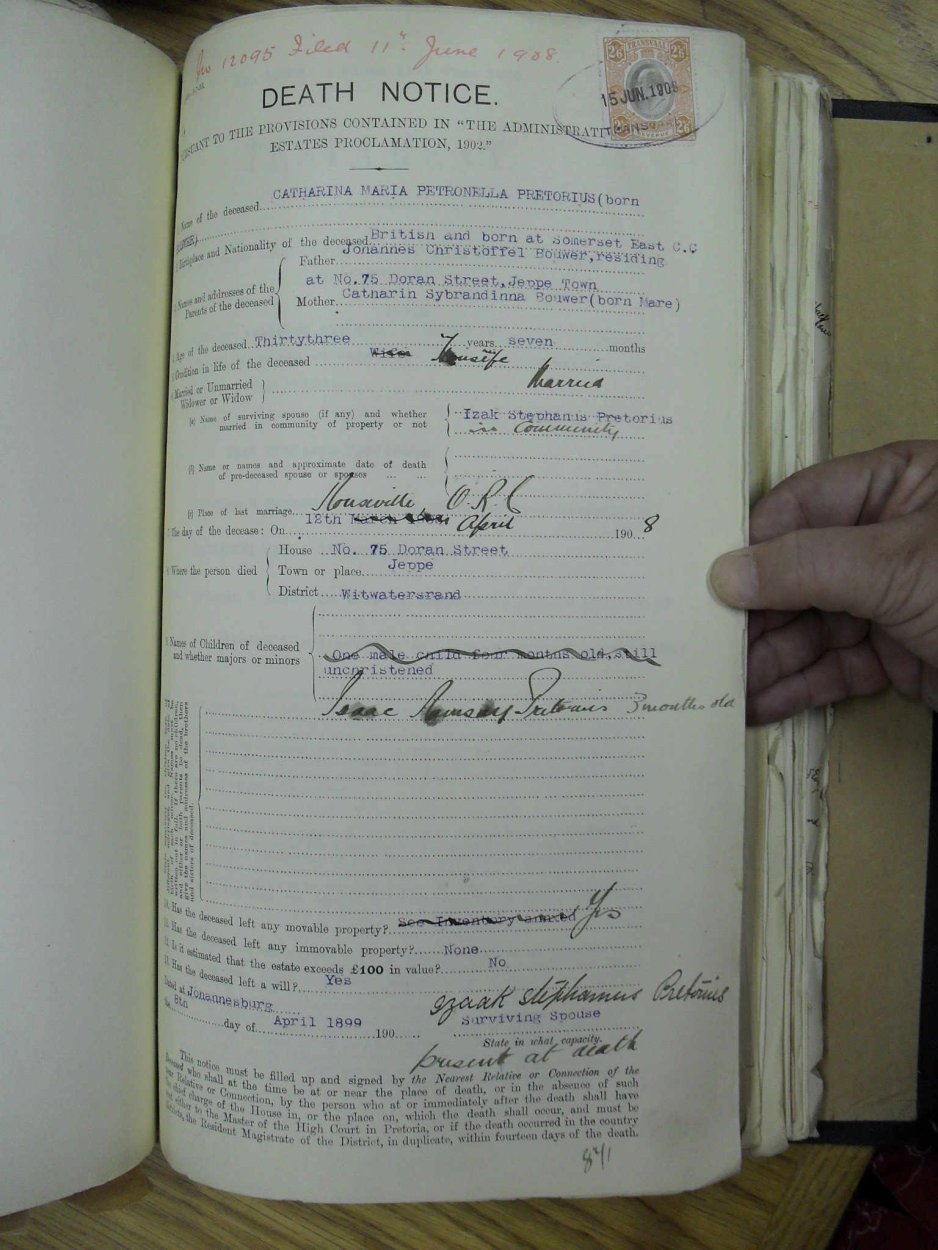 No 12095 Filed 11th June 1908
TRANSVAAL
2/6 2/6
15 JUN. 1908
TRANSVAAL
2/6 REVENUE 2/6
DEATH NOTICE.
PURSUANT TO THE PROVISIONS CONTAINED IN "THE ADMINISTRATION
ESTATES PROCLAMATION, 1902."
Name of the deceased CATHARINA MARIA PETRONELLA PRETORIUS(born
Birthplace and Nationality of the deceased British and born at Somerset East C.C
Names and addresses of the Parents of the deceased
Father Johannes Christoffel Bouwer, residing
at No.75 Doran Street, Jeppe Town
Mother Catharin Sybrandinna Bouwer(born Mare)
Age of the deceased Thirtythree 7 years seven months
Condition in life of the deceased Housewife
Married or Unmarried
Widower or Widow Married
(a) Name of surviving spouse (if any) and whether
married in community of property or not
Izak Stephanus Pretorius
in Community
(b) Name or names and approximate date of death
of pre-deceased spouse or spouses
(c) Place of last marriage O.R.C
The day of the decease: On 12th April 1908
Where the person died
House No. 75 Doran Street
Town or place Jeppe
District Witwatersrand
Names of Children of deceased
and whether majors or minors
One male child four months old, still
uncnristened
Isaac Ramsay Pretorius 3 months old
give the names and addresses of the brothers
and sisters of deceased.
Has the deceased left any movable property? See Inventory annexed Yes
Has the deceased left any immovable property? None
Is it estimated that the estate exceeds £100 in value? No
Has the deceased left a will? Yes
Dated at Johannesburg
the 8th day of April 1899 190
Izaak Stephanus Pretorius
Surviving Spouse
State in what capacity.
present at death
This notice must be filled up and signed by the Nearest Relative or Connection of the
Deceased who shall at the time be at or near the place of death, or in the absence of such
near Relative or Connection, by the person who at or immediately after the death shall have
the chief charge of the House in, or the place on, which the death shall occur, and must be
sent either to the Master of the High Court in Pretoria, or if the death occurred in the country
districts, the Resident Magistrate of the District, in duplicate, within fourteen days of the death.